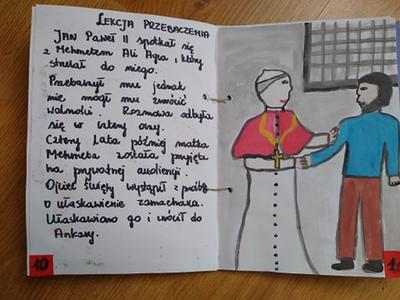 LEKCJA PRZEBACZENIA
JAN PAWEŁ II spotkał się
z Mehmetem Ali Agcą, który
strzelał do niego.
Przebaczył mu jednak
nie mógł mu zwrócić
wolności. Rozmowa odbyła
się w cztery oczy.
Cztery lata później matka
Mehmeta została przyjęta
na prywatnej audiencji.
Ojciec Święty wystąpił z prośbą
o ułaskawienie zamachowca.
Ułaskawiono go i wrócił do
Ankary.
10